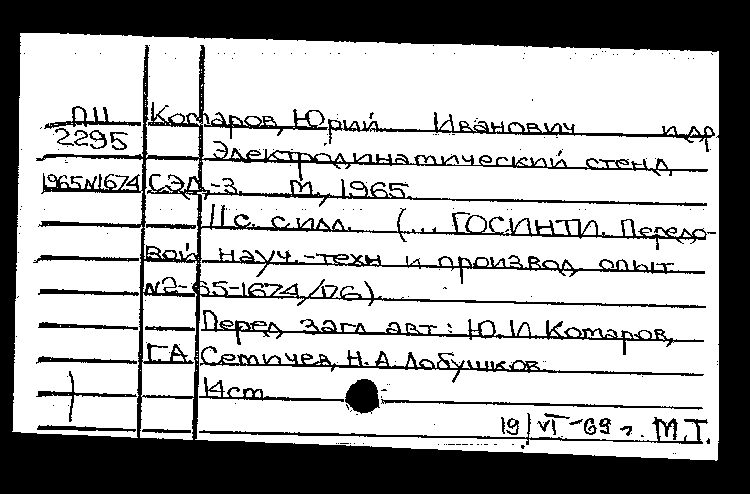 ПП Комаров, Юрий Иванович и др.
2295 Электродинамический стенд
1965N1674 СЭД-3. М., 1965.
11 с. с илл. (... ГОСИНТИ. Передо-
вой науч.-техн и производ опыт
№2-65-1674/176).
Перед загл авт: Ю.И. Комаров,
Г.А. Семичев, Н.А. Лобушков.
14 cm
19/VI-69 г. М.Т.